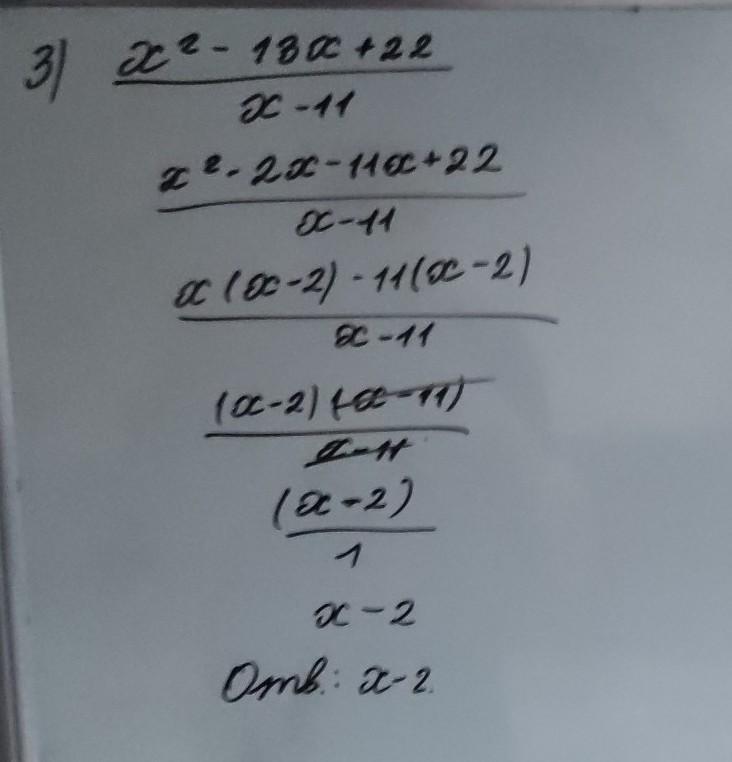 3) x² - 13x + 22
x - 11
x² - 2x - 11x + 22
x - 11
x(x - 2) - 11(x - 2)
x - 11
(x - 2)(x - 11)
x - 11
(x - 2)
1
x - 2
Отв.: x - 2.